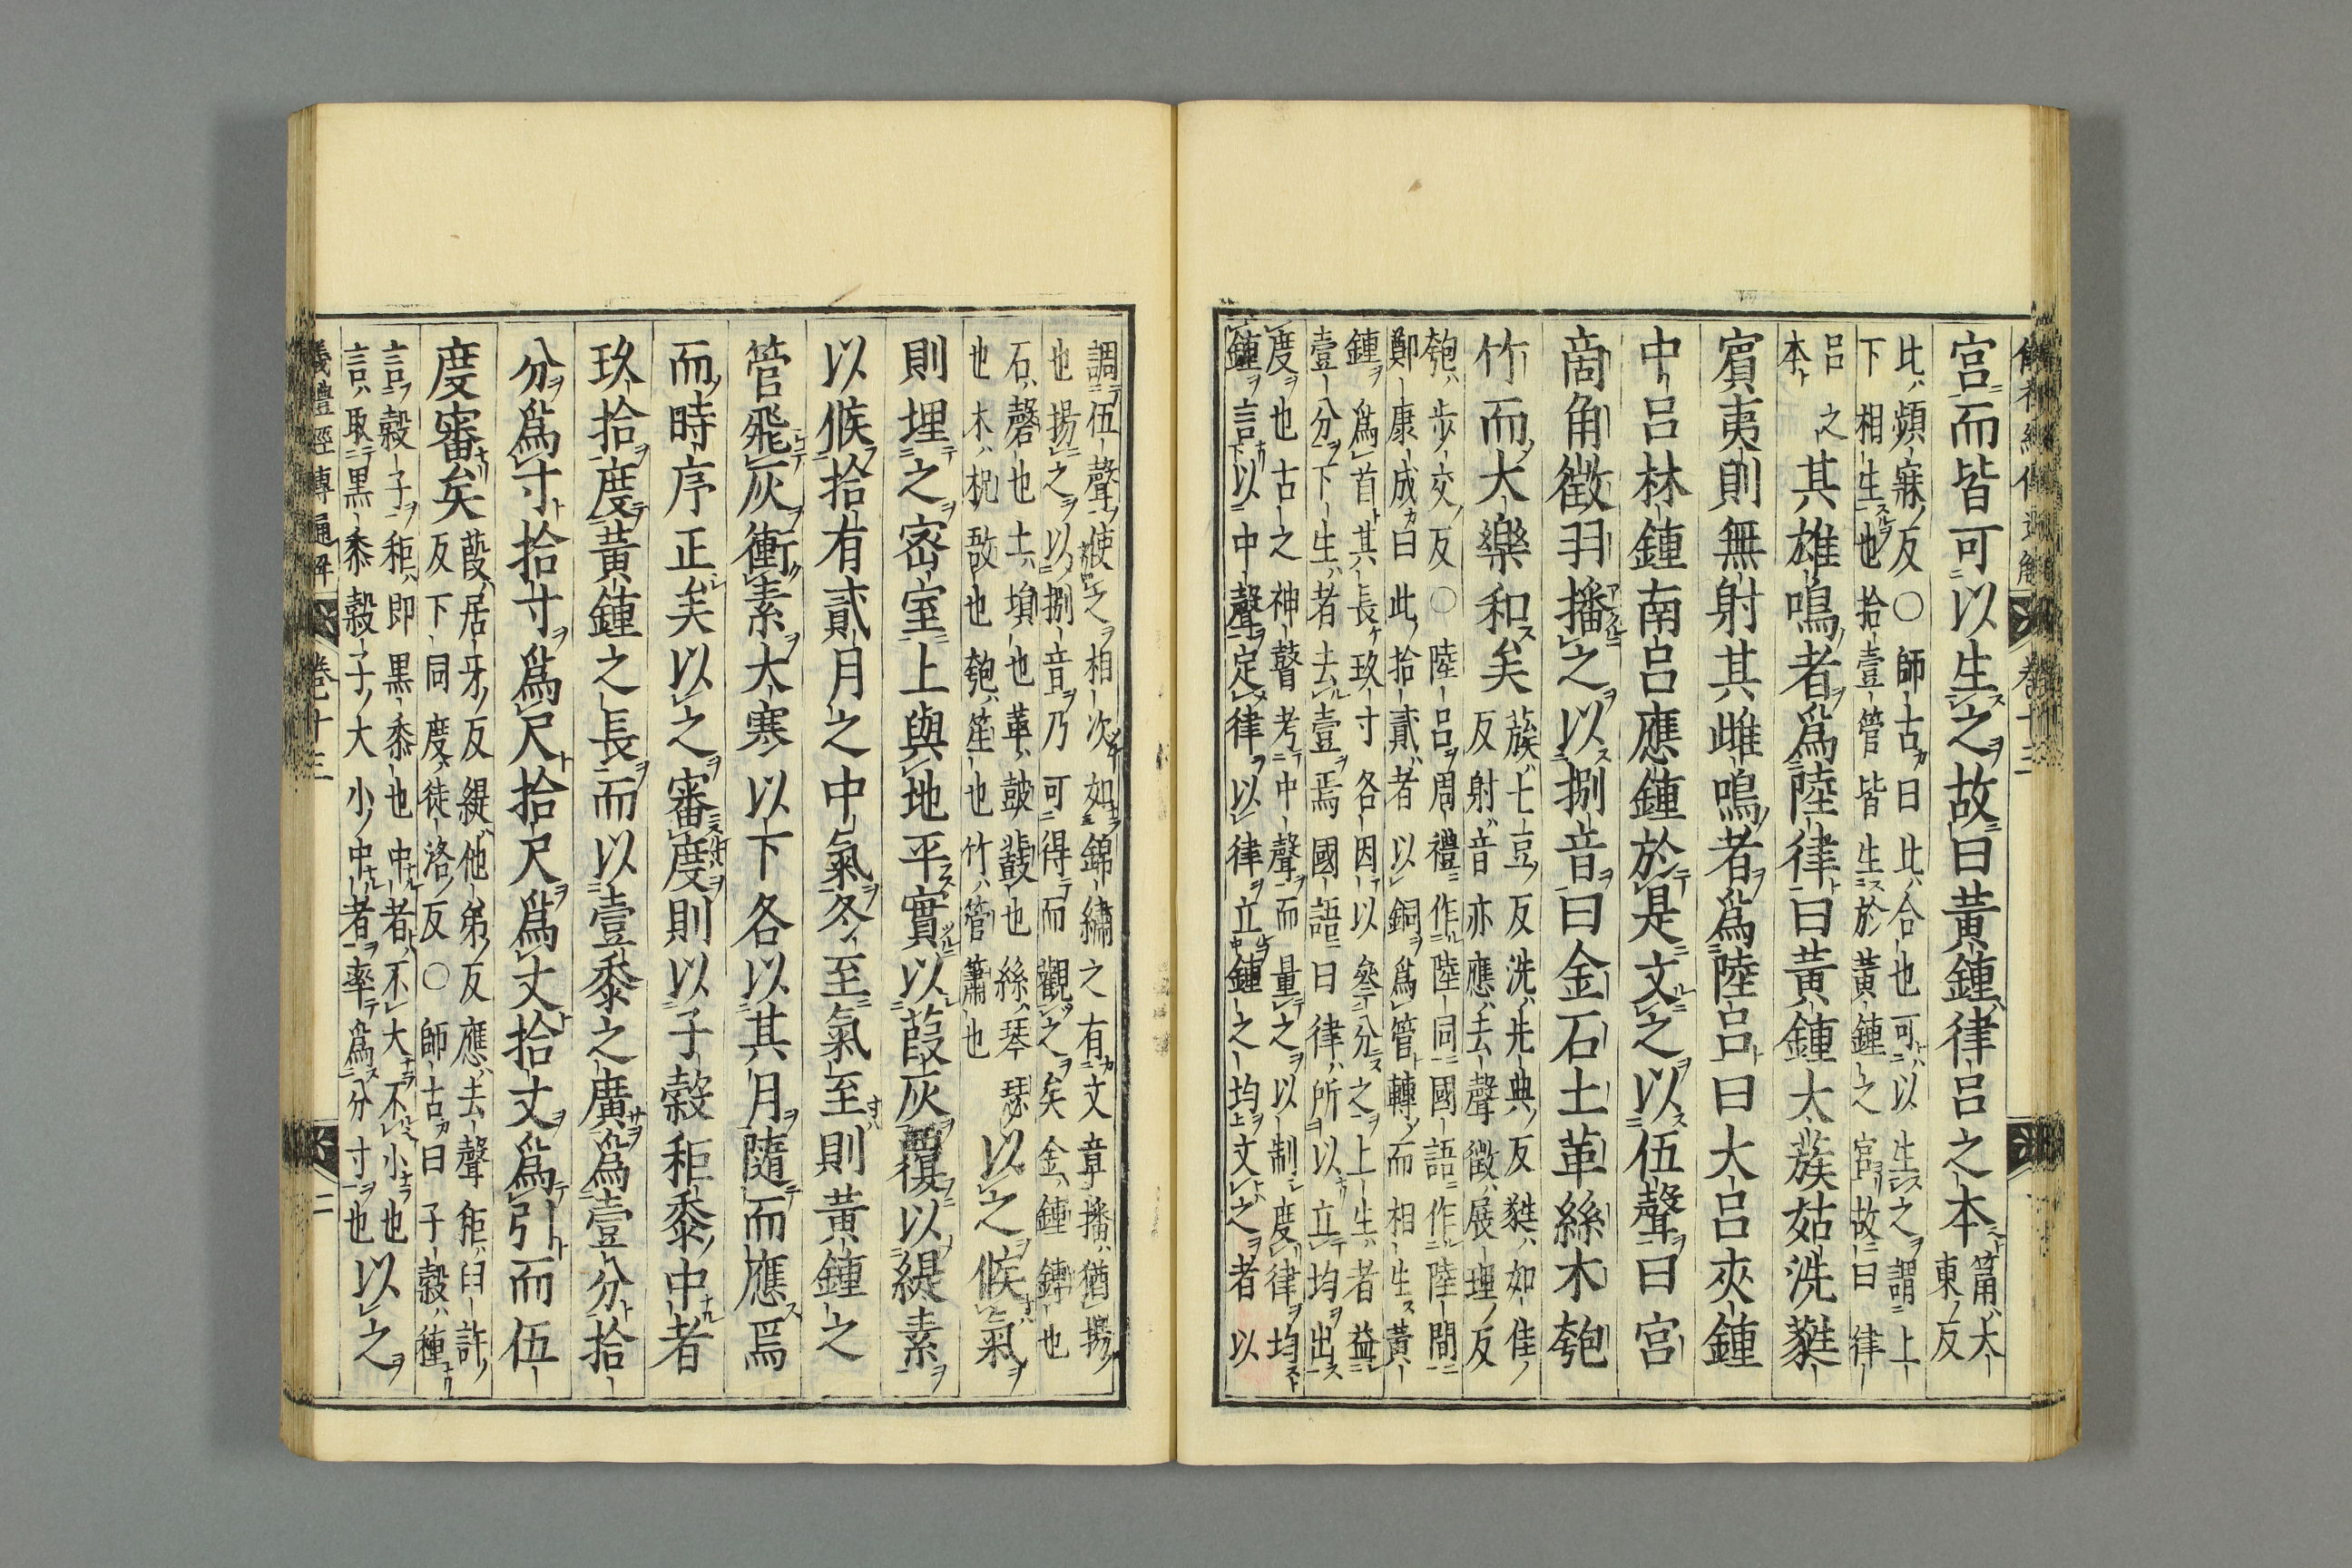 儀禮經傳通解 卷十三
宮而皆可以生之故曰黃鍾律呂之本筩大
東反
比頻寐反○師古曰比合也可以生之謂上
下相生也拾壹管皆生於黃鍾之宮故曰律
呂之
本
其雄鳴者爲陸律曰黃鍾大蔟姑洗蕤
賓夷則無射其雌鳴者爲陸呂曰大呂夾鍾
中呂林鍾南呂應鍾於是文之以伍聲曰宮
商角徵羽播之以捌音曰金石土革絲木匏
竹而大樂和矣蔟七豆反洗先典反蕤如佳
反射音亦應去聲徵展理反
匏步交反○陸呂周禮作陸同國語作陸間
鄭康成曰此拾貳者以銅爲管轉而相生黃
鍾爲首其長玖寸各因以叄分之上生者益
壹分下生者去壹焉國語曰律所以立均出
度也古之神瞽考中聲而量之以制度律均
鍾言以中聲定律以律立鍾之均文之者以
調伍聲使之相次如錦繡之有文章播猶揚
也揚之以捌音乃可得而觀之矣金鍾鎛也
石磬也土塤也革鼓鼗也絲琴瑟
也木柷敔也匏笙也竹管簫也
以之候氣
則埋之密室上與地平實以葭灰覆以緹素
以候拾有貳月之中氣冬至氣至則黃鍾之
管飛灰衝素大寒以下各以其月隨而應焉
而時序正矣以之審度則以子穀秬黍中者
玖拾度黃鍾之長而以壹黍之廣爲壹分拾
分爲寸拾寸爲尺拾尺爲丈拾丈爲引而伍
度審矣葭居牙反緹他弟反應去聲秬臼許
反下同度徒洛反○師古曰子穀種
言穀子秬即黑黍也中者不大不小也
言取黑黍穀子大小中者率爲分寸也
以之
儀禮經傳通解 卷十三 二